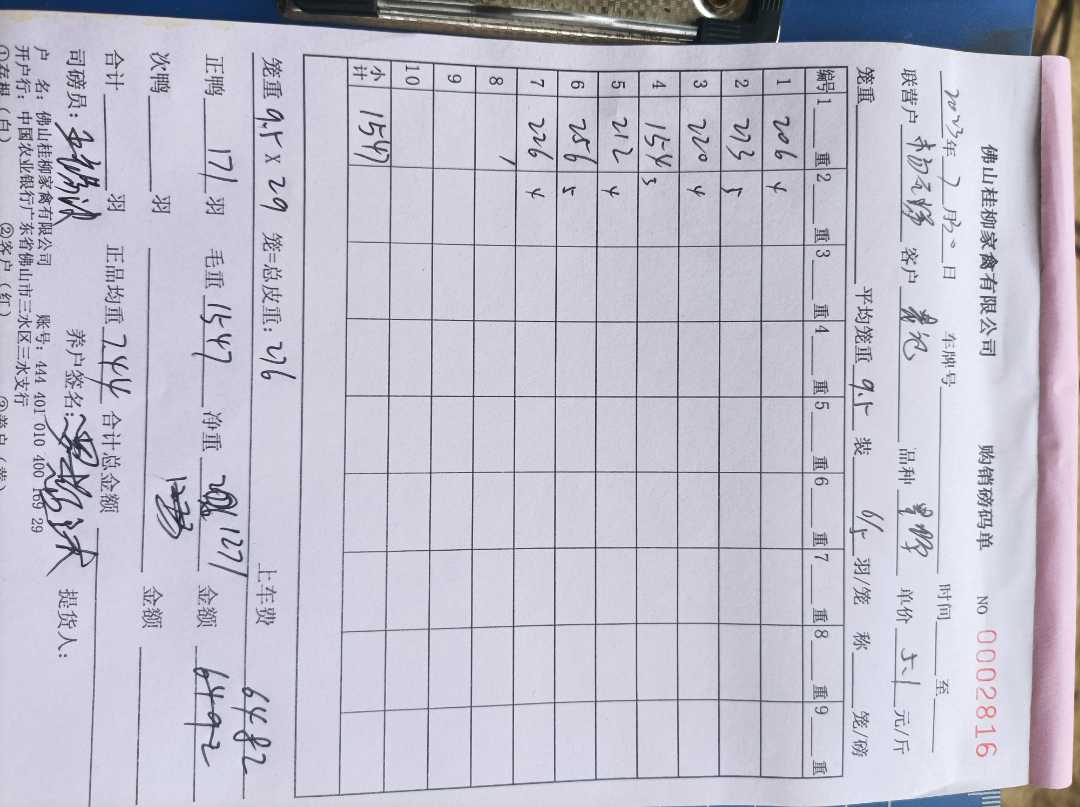 佛山桂柳家禽有限公司 购销磅码单 NO 0002816
2023年7月30日 车牌号 时间 至
联营户 客户 品种 单价 5.1 元/斤
笼重 平均笼重 9.5 装 6/5 羽/笼 称 笼/磅
编号 1 重 2 重 3 重 4 重 5 重 6 重 7 重 8 重 9 重
1 206 4
2 273 5
3 220 4
4 154 3
5 212 4
6 256 5
7 226 4
8
9
10
小计 1547
笼重 9.5 X 29 笼=总皮重: 276 上车费 6482
正鸭 171 羽 毛重 1547 净重 1271 金额 6492
次鸭 羽 金额
合计 羽 正品均重 7.44 合计总金额
司磅员: 养户签名: 提货人:
户 名: 佛山桂柳家禽有限公司 账号: 444 401 010 400 169 29
开户行: 中国农业银行广东省佛山市三水区三水支行
①存根(白) ②客户(红) ③养户(黄)